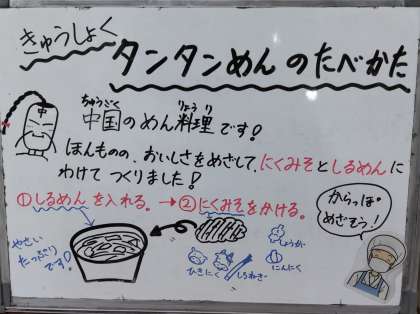 きゅうしょく
タンタンめんのたべかた
中
ちゅうごく りょうり
中国のめん料理です!
ほんものの、おいしさをめざして、にくみそとしるめんに
わけて つくりました!
①しるめんを入れる。→②にくみそをかける。
からっぽ
めざそう!
やさい
たっぷり
です!
しょうが
ひきにく
しろねぎ
にんにく